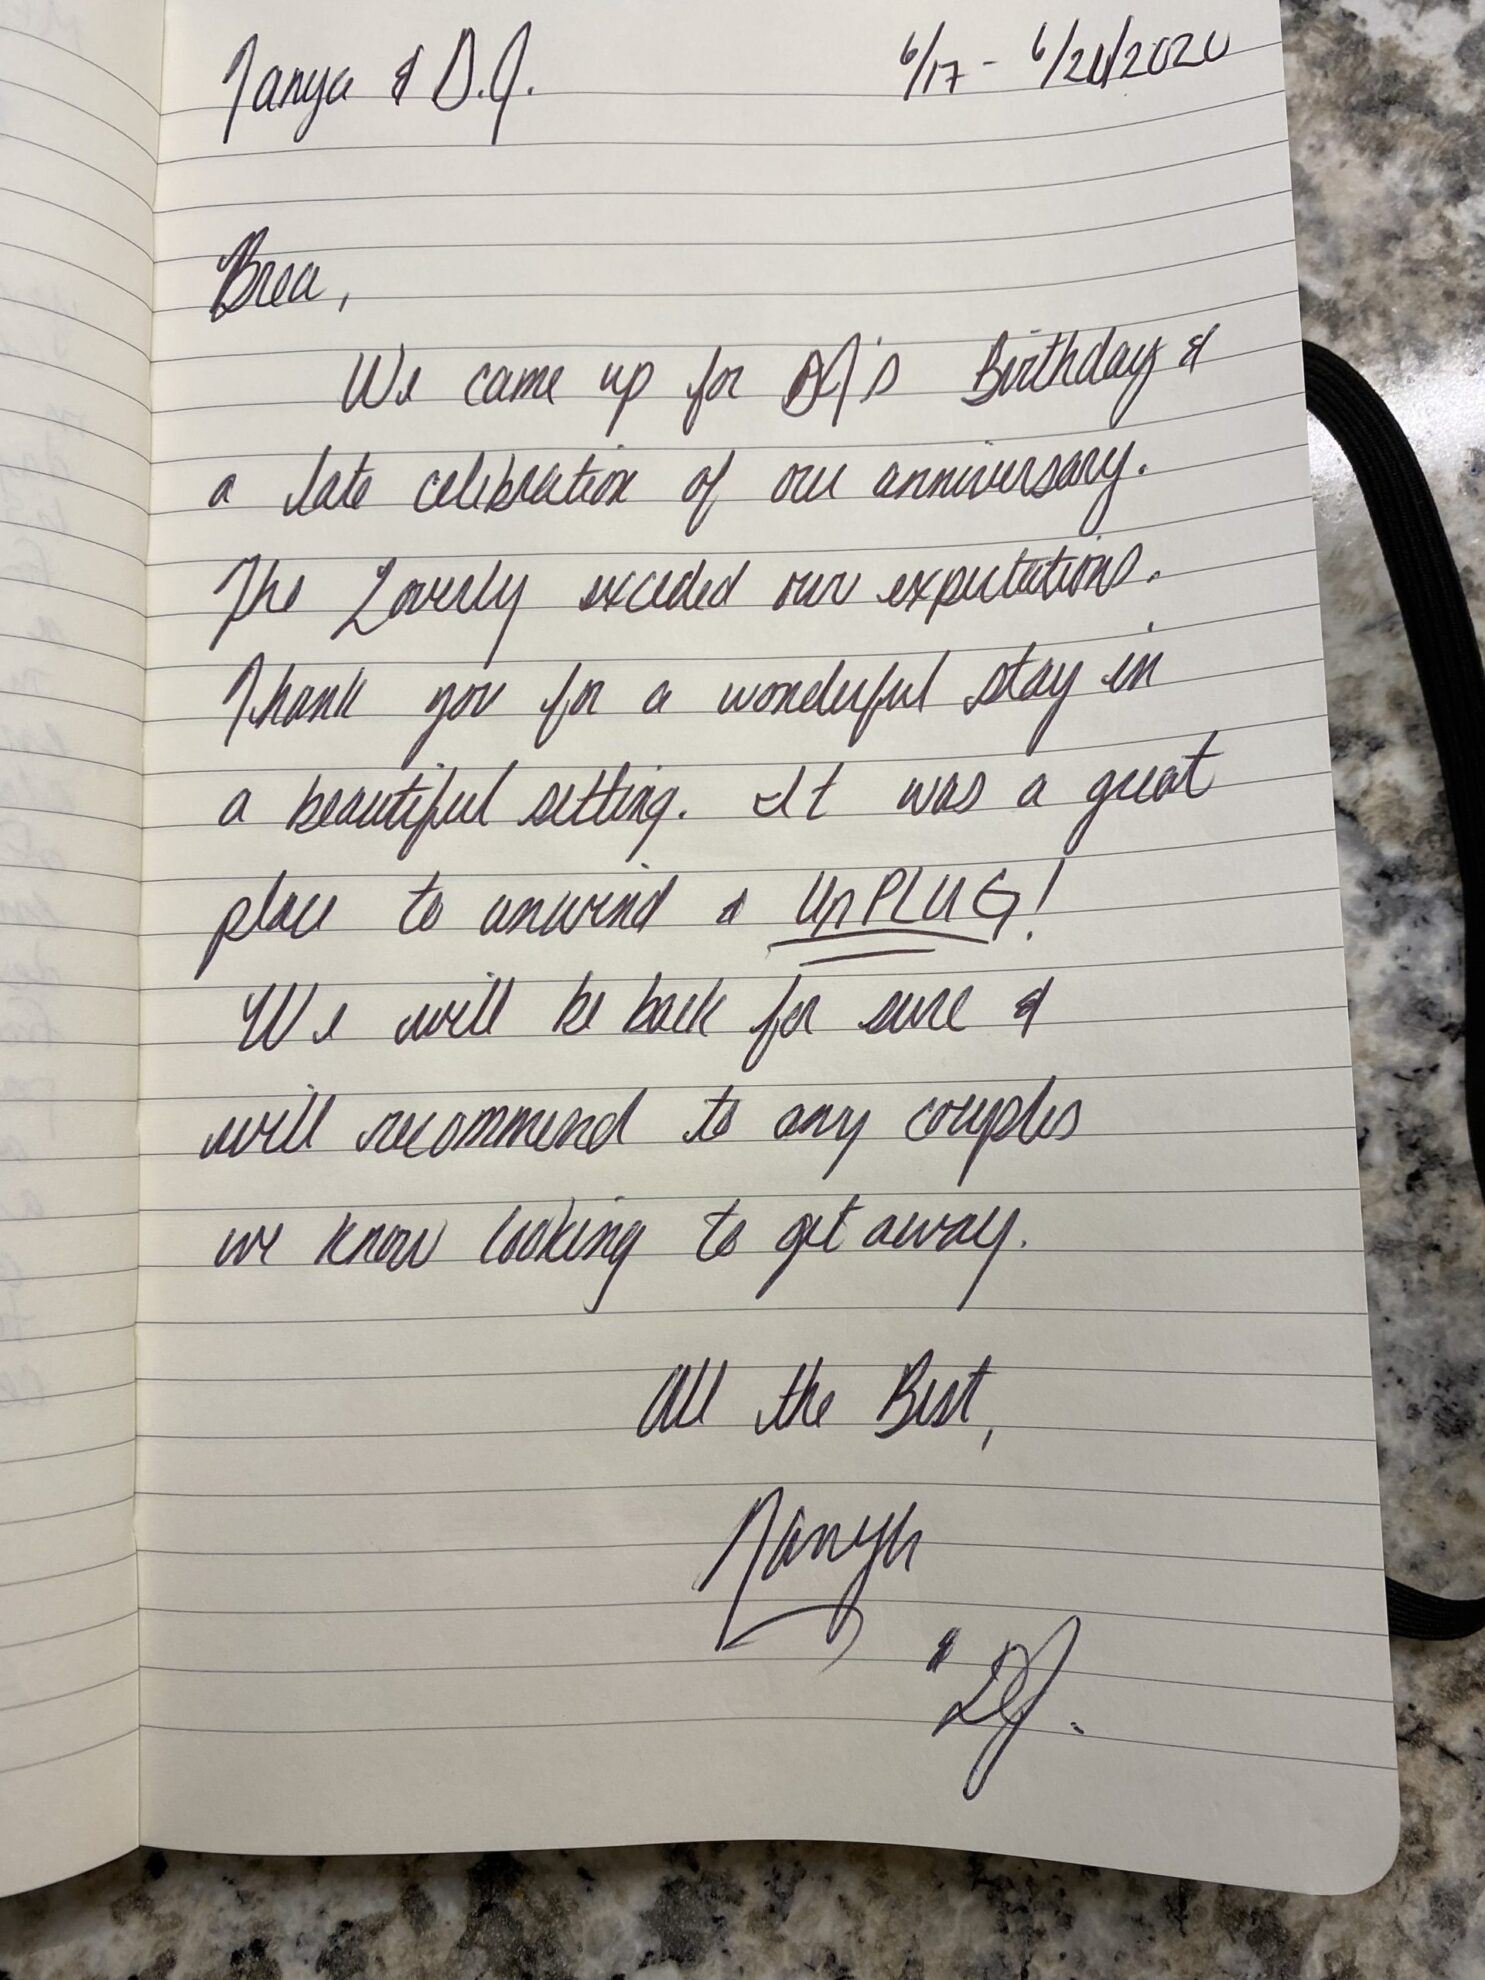 Tanya & D.J. 6/17 - 6/21/2020
Brea,
We came up for DJ's Birthday &
a late celebration of our anniversary.
The Lovely exceded our expectations.
Thank you for a wonderful stay in
a beautiful setting. It was a great
place to unwind & UnPLUG!
We will be back for sure &
will recommend to any couples
we know looking to get away.
All the Best,
Tanya
& DJ.